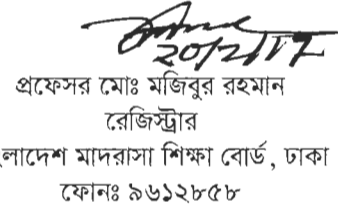 প্রফেসর মোঃ মজিবুর রহমান
রেজিস্ট্রার
লাদেশ মাদরাসা শিক্ষা বোর্ড, ঢাকা
ফোনঃ ৯৬১২৮৫৮